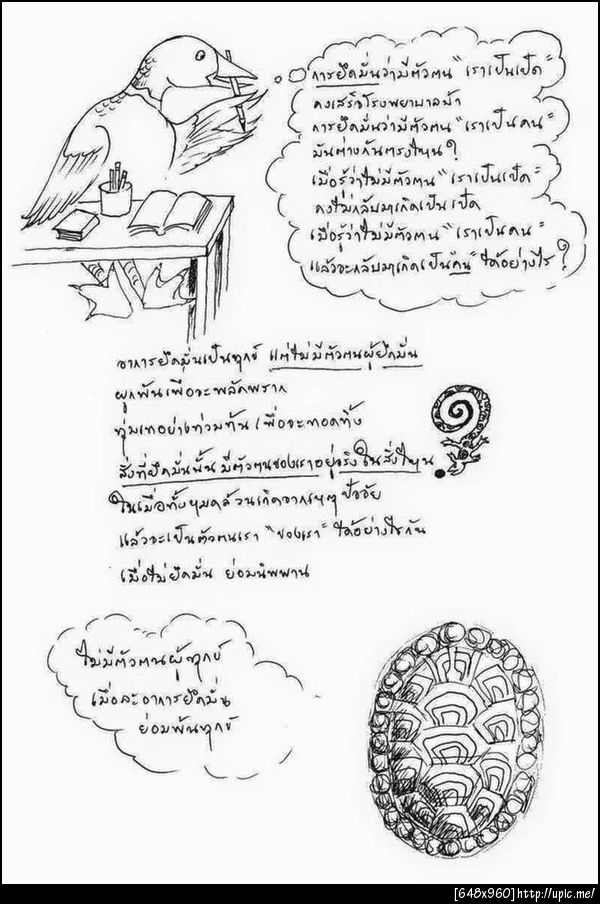 การยึดมั่นว่ามีตัวตน "เราเป็นเป็ด"
คงเสร็จโรงพยาบาลบ้า
การยึดมั่นว่ามีตัวตน "เราเป็นคน"
มันต่างกันตรงไหน?
เมื่อรู้ว่าไม่มีตัวตน "เราเป็นเป็ด"
คงไม่กลับมาเกิดเป็นเป็ด
เมื่อรู้ว่าไม่มีตัวตน "เราเป็นคน"
แล้วจะกลับมาเกิดเป็น"คน" ได้อย่างไร?
อาการยึดมั่นเป็นทุกข์ แต่ไม่มีตัวตนผู้ยึดมั่น
ผูกพันเพื่อจะพลัดพราก
ทุ่มเทอย่างท่วมท้น เพื่อจะทอดทิ้ง
สิ่งที่ยึดมั่นนั้น มีตัวตนของเราอยู่จริงในสิ่งไหน
ในเมื่อทั้งหมดล้วนเกิดจากเหตุปัจจัย
แล้วจะเป็นตัวตนเรา "ของเรา" ได้อย่างไรกัน
เมื่อไม่ยึดมั่น ย่อมนิพพาน
ไม่มีตัวตนผู้ทุกข์
เมื่อละอาการยึดมั่น
ย่อมพ้นทุกข์
[648x960]http://upic.me/